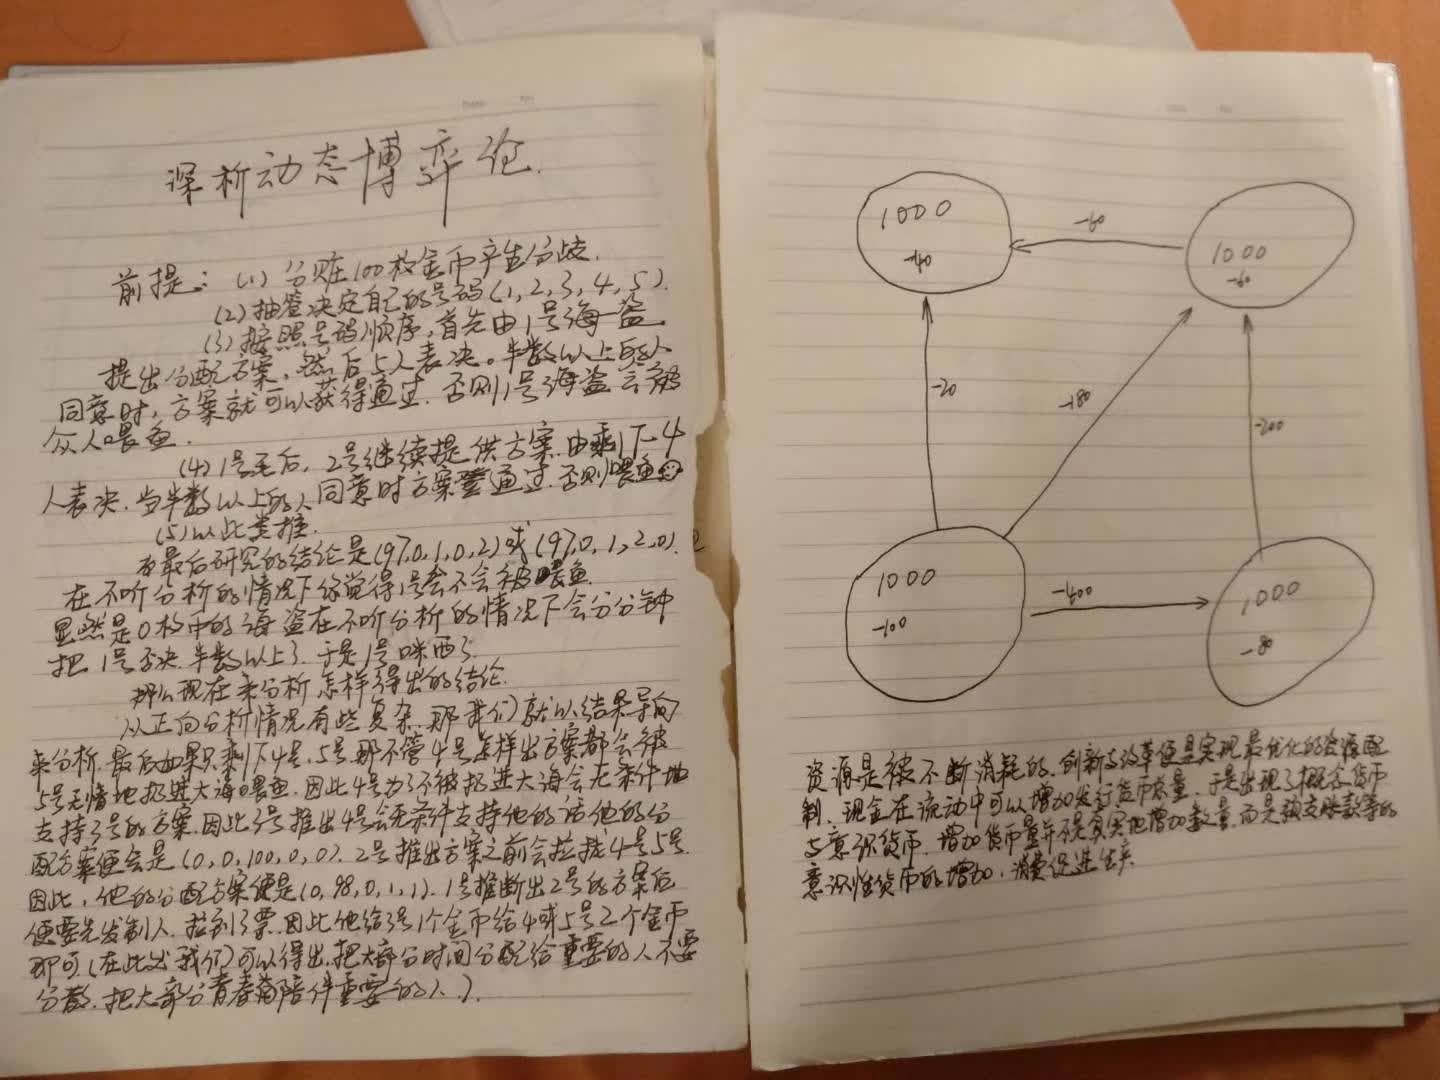 深析动态博弈论.
前提: (1) 分赃100枚金币产生分歧.
(2) 抽签决定自己的号码(1,2,3,4,5).
(3) 按照号码顺序,首先由1号海盗
提出分配方案,然后5人表决。半数以上的人
同意时,方案就可以获得通过.否则1号海盗会被
众人喂鱼.
(4) 1号死后,2号继续提供方案.由剩下4
人表决.当半数以上的人同意时方案通过.否则喂鱼
(5) 以此类推.
最后研究的结论是(97,0,1,0,2)或(97,0,1,2,0).
在不听分析的情况下你觉得1号会不会被喂鱼.
显然是0枚中的海盗在不听分析的情况下会分分钟
把1号否决.半数以上了.于是1号咪西了.
那么现在来分析怎样得出的结论.
从正向分析情况有些复杂.那我们就以结果导向
来分析.最后如果只剩下4号.5号那不管4号怎样出方案都会被
5号无情地扔进大海喂鱼.因此4号为了不被扔进大海会无条件地
支持3号的方案.因此3号推出4号会无条件支持他的话他的分
配方案便会是(0,0,100,0,0).2号推出方案之前会拉拢4号5号.
因此,他的分配方案便是(0,98,0,1,1).1号推断出2号的方案后
便要先发制人.拉到3票.因此他给3号1个金币给4或5号2个金币
即可(在此我们可以得出.把大部分时间分配给重要的人不要
分散.把大部分青春陪伴重要的人.).
1000
1000
-60
-20
-180
-200
1000
-100
-400
1000
-80
资源是被不断消耗的.创新与改革便是实现最优化的资源配
制.现金在流动中可以增加发行货币总量.于是出现了概念货币
与意识货币.增加货币量并不是真实地增加数量.而是预支账款等的
意识性货币的增加.消费促进生产.